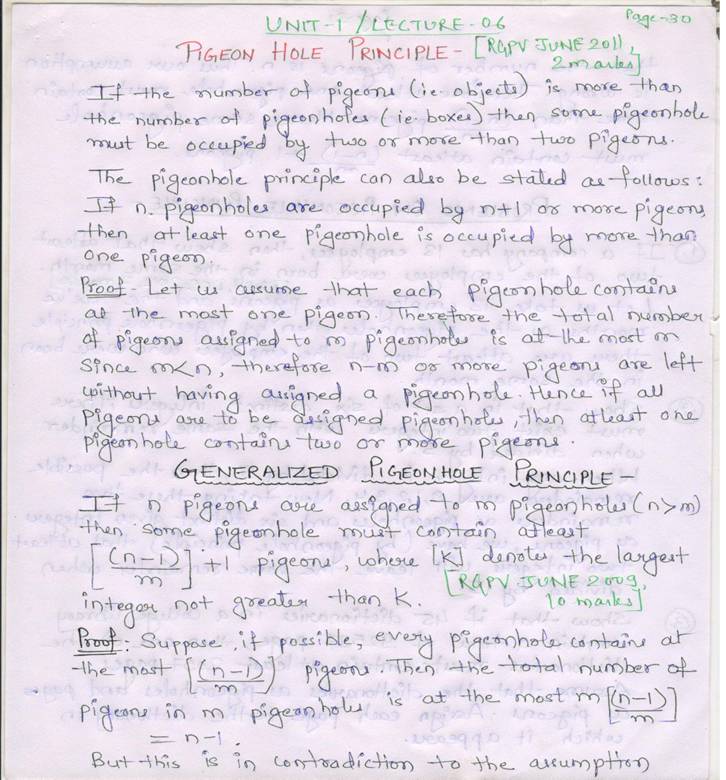 UNIT-1 / LECTURE-06
Page-30
PIGEON HOLE PRINCIPLE - [RGPV JUNE 2011,
2 marks]
If the number of pigeons (ie objects) is more than
the number of pigeonholes (ie. boxes) then some pigeonhole
must be occupied by two or more than two pigeons.
The pigeonhole principle can also be stated as follows:
If n pigeonholes are occupied by n+1 or more pigeons,
then at least one pigeonhole is occupied by more than
one pigeon
Proof - Let us assume that each pigeonhole contains
at the most one pigeon. Therefore the total number
of pigeons assigned to m pigeonholes is at the most m
Since m<n, therefore n-m or more pigeons are left
without having assigned a pigeonhole. Hence if all
pigeons are to be assigned pigeonholes, then atleast one
pigeonhole contains two or more pigeons.
GENERALIZED PIGEONHOLE PRINCIPLE -
If n pigeons are assigned to m pigeonholes (n>m)
then some pigeonhole must contain atleast
[(n-1)/m] + 1 pigeons, where [K] denotes the largest
[RGPV JUNE 2009,
integer not greater than K.
10 marks]
Proof - Suppose, if possible, every pigeonhole contains at
the most [(n-1)/m] pigeons. Then the total number of
pigeons in m pigeonholes is at the most m[(n-1)/m]
= n-1.
But this is in contradiction to the assumption